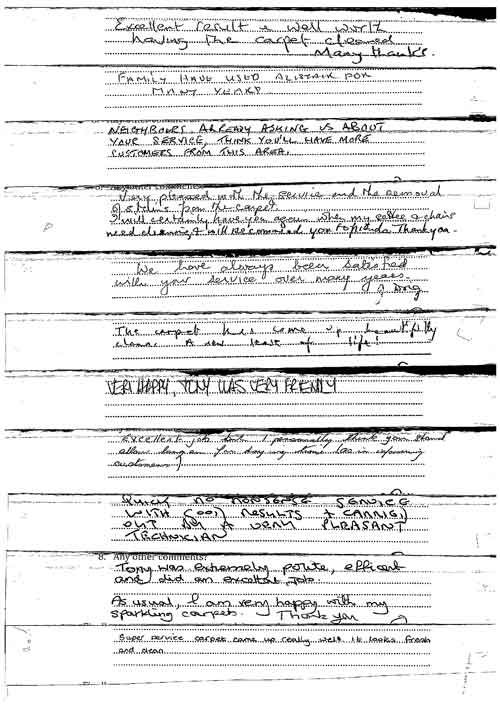 Excellent result & well worth
having the carpet cleaned
Many thanks.
FAMILY HAVE USED ALISTAIR FOR
MANY YEARS
NEIGHBOURS ALREADY ASKING US ABOUT
YOUR SERVICE, THINK YOU'LL HAVE MORE
CUSTOMERS FROM THIS AREA.
Very pleased with the service and the removal
of stains from the carpet
I will certainly have you again when my settee & chairs
need cleaning & will recommend you to friends. Thank you.
We have always been satisfied
with your service over many years.
The carpet has come up beautifully
clean. A new lease of life!
VERY HAPPY, TONY WAS VERY FRIENLY
Excellent job I personally think you should
allow
customers)
QUICK NO NONSENSE SERVICE
WITH GOOD RESULTS & CARRIED
OUT BY A VERY PLEASANT
TECHNICIAN
8. Any other comments?
Tony was extremely polite, efficent
and did an excellent job.
As usual, I am very happy with my
sparkling carpet. Thank you
Super service carpet came up really well it looks fresh
and clean